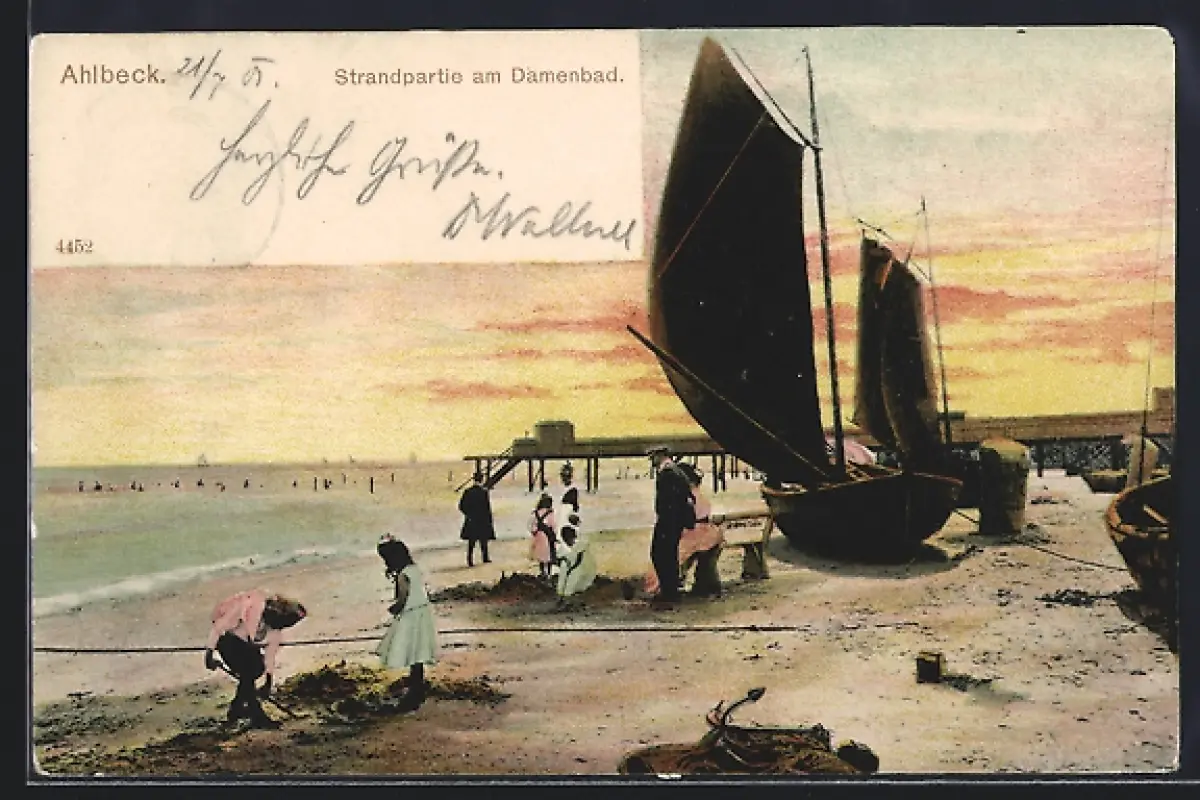 Ahlbeck. 21/7 05. Strandpartie am Damenbad.
Herzliche Grüße.
Wallner
4452